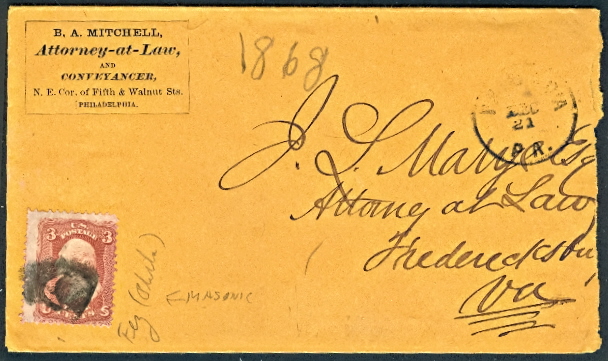 B. A. MITCHELL,
Attorney-at-Law,
AND
CONVEYANCER,
N. E. Cor. of Fifth & Walnut Sts.
PHILADELPHIA.
1868
DEC
21
PA.
J. L. Marye Esq
Attorney at Law
Fredericksbu
Va
U.S.
POSTAGE
3 3
CENTS
Fez
←MASONIC